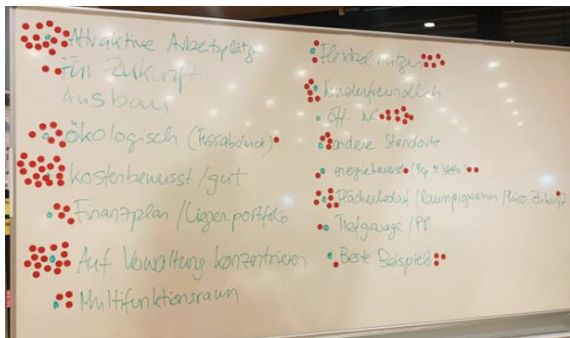 Attraktive Arbeitsplätze
Für Zukunft
Ausbau
Ökologisch (Fussabdruck)
Kostenbewusst/gut
Finanzplan/Liegen.portfolio
Auf Verwaltung konzentrieren
Multifunktionsraum
Flexibel nutzen
kinderfreundlich
öff. WC
andere Standorte
energiebewusst (Bsp.
Flächenbedarf/Raumprogramm/Büro Zukunft
Tiefgarage/PP
Beste Beispiele